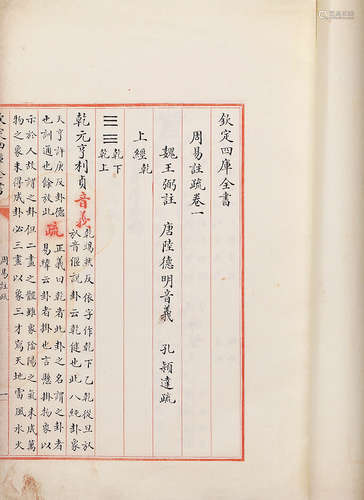 欽定四庫全書
周易註疏卷一
魏王弼註 唐陸德明音義 孔穎達疏
上經乾
乾下
乾上
乾元亨利貞 音義 乾竭然反依字作乾下乙乾從旦放
放音偃說卦云乾健也此八純卦象
天亨許庚反卦德
也訓通也餘放此 疏 正義曰乾者此卦之名謂之卦者
易緯云卦者掛也言懸掛物象以
示於人故謂之卦但二畫之體雖象陰陽之氣未成萬
物之象未得成卦必三畫以象三才寫天地雷風水火
欽定四庫全書
周易註疏
一